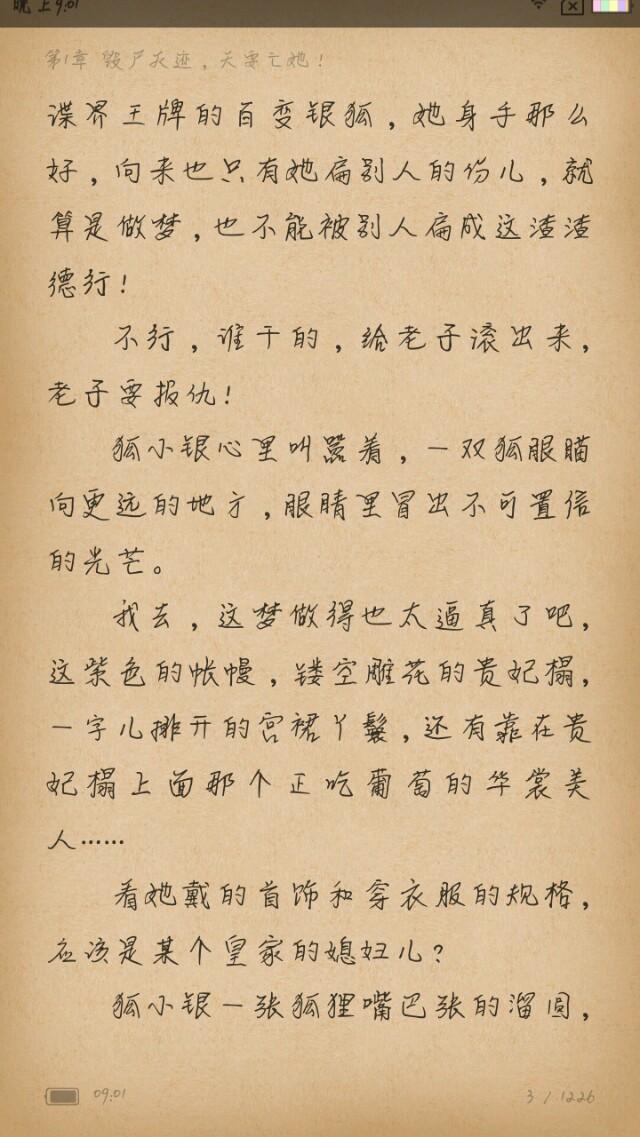 晚上9:01
第1章 毁尸灭迹，天要亡她！
谍界王牌的百变银狐，她身手那么
好，向来也只有她扁别人的份儿，就
算是做梦，也不能被别人扁成这渣渣
德行！
不行，谁干的，给老子滚出来，
老子要报仇！
狐小银心里叫嚣着，一双狐眼瞄
向更远的地方，眼睛里冒出不可置信
的光芒。
我去，这梦做得也太逼真了吧，
这紫色的帐幔，镂空雕花的贵妃榻，
一字儿排开的宫裙丫鬟，还有靠在贵
妃榻上面那个正吃葡萄的华裳美
人……
看她戴的首饰和穿衣服的规格，
应该是某个皇家的媳妇儿？
狐小银一张狐狸嘴巴张的溜圆，
09:01
3 / 1226